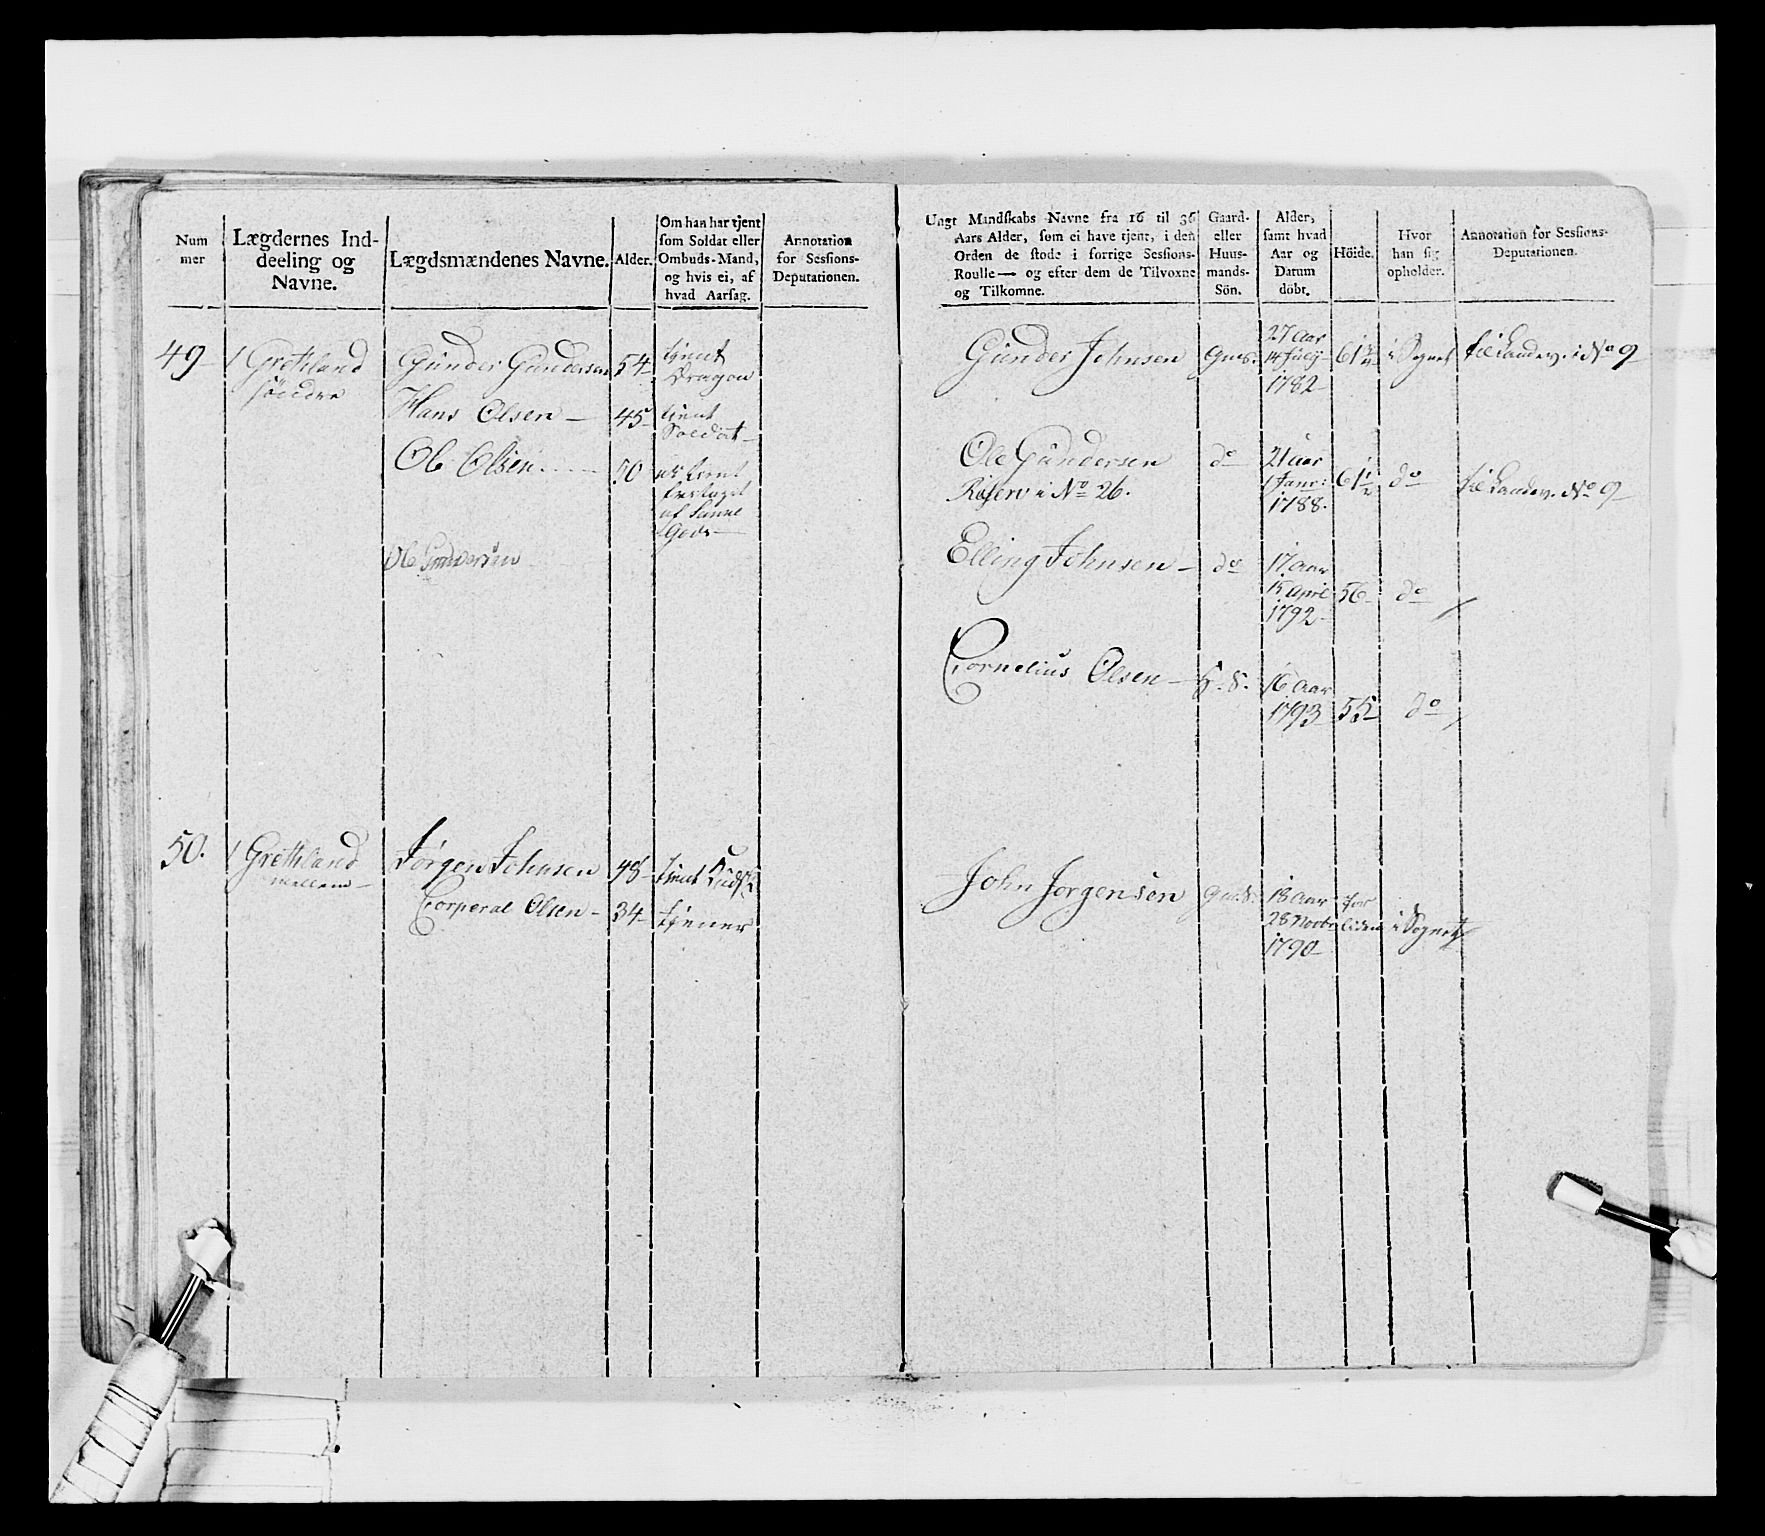 Num
mer
Lægdernes Ind-
deeling og
Navne.
Lægdsmændenes Navne.
Alder.
Om han har tjent
som Soldat eller
Ombuds-Mand,
og hvis ei, af
hvad Aarsag.
Annotation
for Sessions-
Deputationen.
49
1 Grethland
söndre
Gunder Gundersen
54
tjent
Dragon
Hans Olsen
45
tjent
Soldat
Ole Olsen
50
af
Gods
Ole Gundersen
50.
1 Grethland
mellem
Jørgen Johnsen
48
tjent
Corperal Olsen
34
tjener
Ungt Mandskabs Navne fra 16 til 36
Aars Alder, som ei have tjent, i den
Orden de stode i forrige Sessions-
Roulle — og efter dem de Tilvoxne
og Tilkomne.
Gaard-
eller
Huus-
mands-
Sön.
Alder,
samt hvad
Aar og
Datum
döbt.
Höide.
Hvor
han sig
opholder.
Annotation for Sessions-
Deputationen.
Gunder Johnsen
Gms.
27 Aar
14 July
1782
61 1/2
i Sognet
til Landev. i No 9
Ole Gundersen
Reserv i No 26.
do
21 Aar
1 Janr:
1788.
61 1/2
do
til Landev. No 9
Elling Johnsen
do
17 Aar
15 April
1792
56
do
Cornelius Olsen
H. S.
16 Aar
1793
55
do
John Jorgensen
Gm.S.
18 Aar
28 Novbr
1790
for
liden
i Sognet